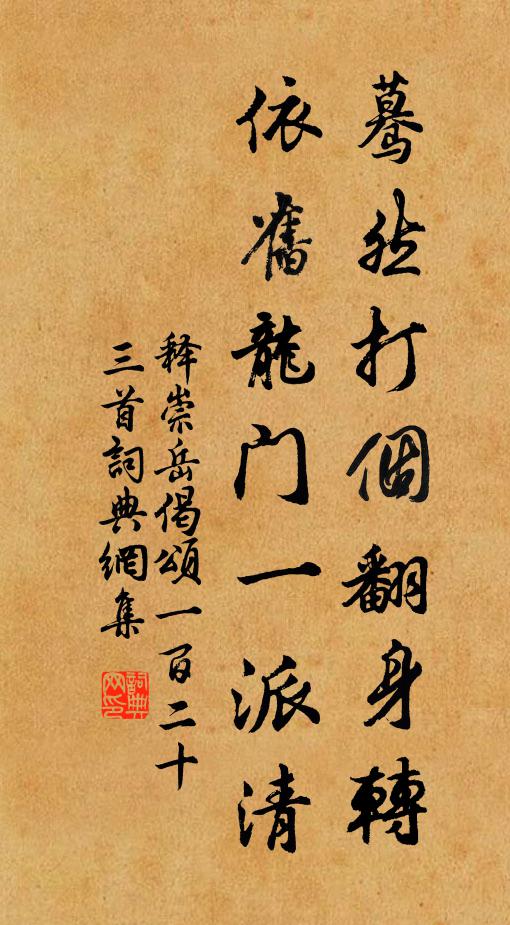 驀然打個翻身轉
依舊龍門一派清
释崇岳偈頌一百二十
三首詞典網集
詞典网印